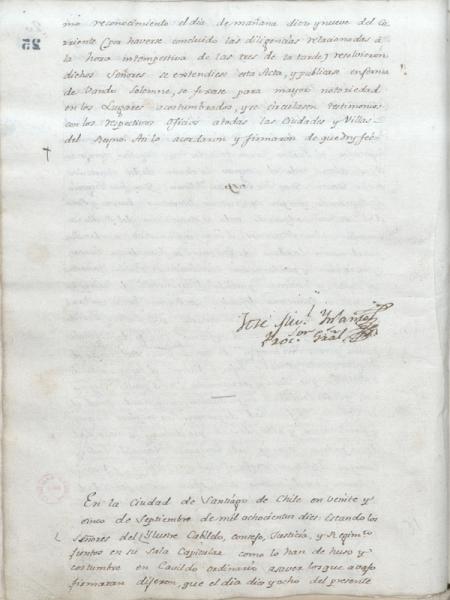 25
mo reconocimiento el dia de mañana diez y nueve del Co
rriente (por haverse concluido las diligencias relacionadas á
la hora intempestiva de las tres de la tarde) resolvieron
dichos Señores se entendiese esta Acta, y publicase en forma
de Vando solemne, se fixase para mayor notoriedad
en los Lugares acostumbrados, y se circulasen testimonios
con los respectivos oficios a todas las Ciudades y Villas
del Reyno. Asi lo acordaron y firmaron de que doy fee
José Mig.l Ynfante
Proc.or Gral
En la Ciudad de Santiago de Chile en veinte y
cinco de Septiembre de mil ochocientos diez: Estando los
Señores del Ylustre Cabildo, consejo, Justicia, y Regim.to
juntos en su Sala Capitular como lo han de huso y
costumbre en Cavildo ordinario asaver los que avajo
firmaran dijeron, que el dia diez y ocho del presente